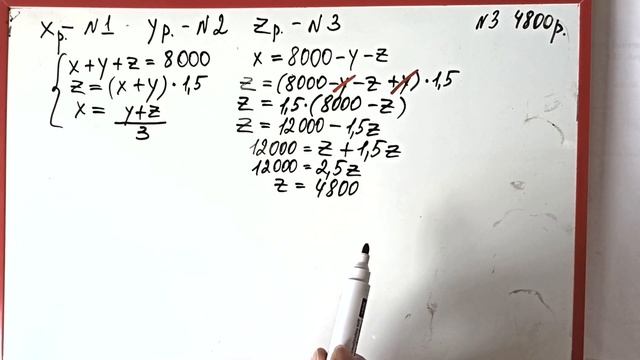 x р. - N1 y р. - N2 z р. - N3
N3 4800р.
x + y + z = 8000
z = (x + y) · 1,5
x = (y + z)/3
x = 8000 - y - z
z = (8000 - y - z + y) · 1,5
z = 1,5 · (8000 - z)
z = 12000 - 1,5z
12000 = z + 1,5z
12000 = 2,5z
z = 4800